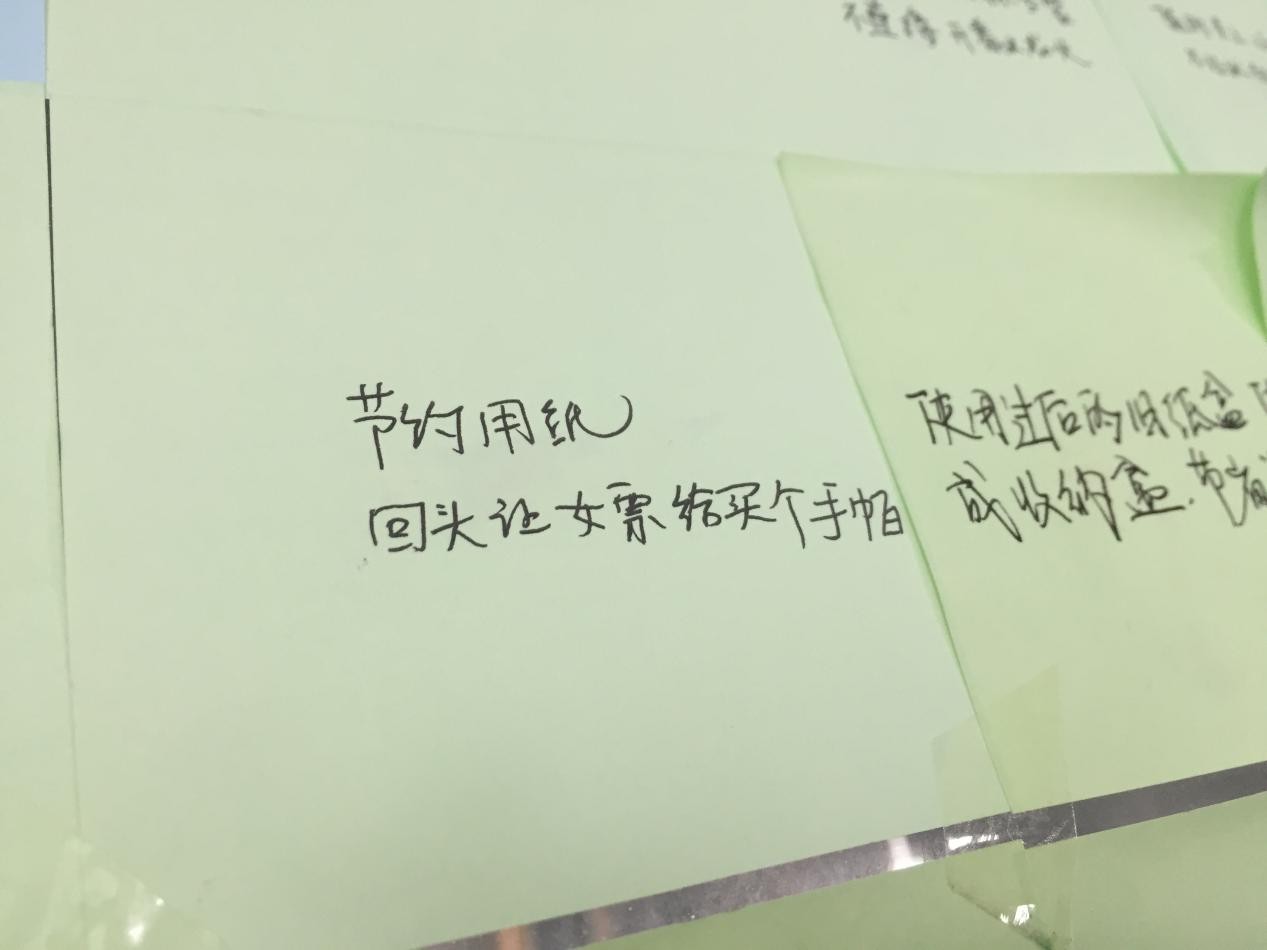 节约用纸
回头让女票给买个手帕
使用过后的旧纸盒
成收纳盒.节省